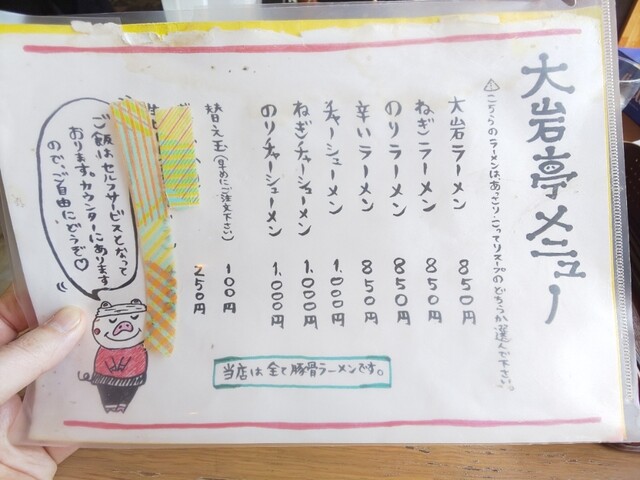 大岩亭メニュー
⚠こちらのラーメンは、あっさり・こってりスープのどちらか選んで下さい。
大岩ラーメン 850円
ねぎラーメン 850円
のりラーメン 850円
辛いラーメン 850円
チャーシューメン 1,000円
ねぎチャーシューメン 1,000円
のりチャーシューメン 1,000円
替え玉(早めにご注文下さい) 100円
250円
当店は全て豚骨ラーメンです。
ご飯はセルフサービスとなって
おります。カウンターにあります
ので、ご自由にどうぞ♡